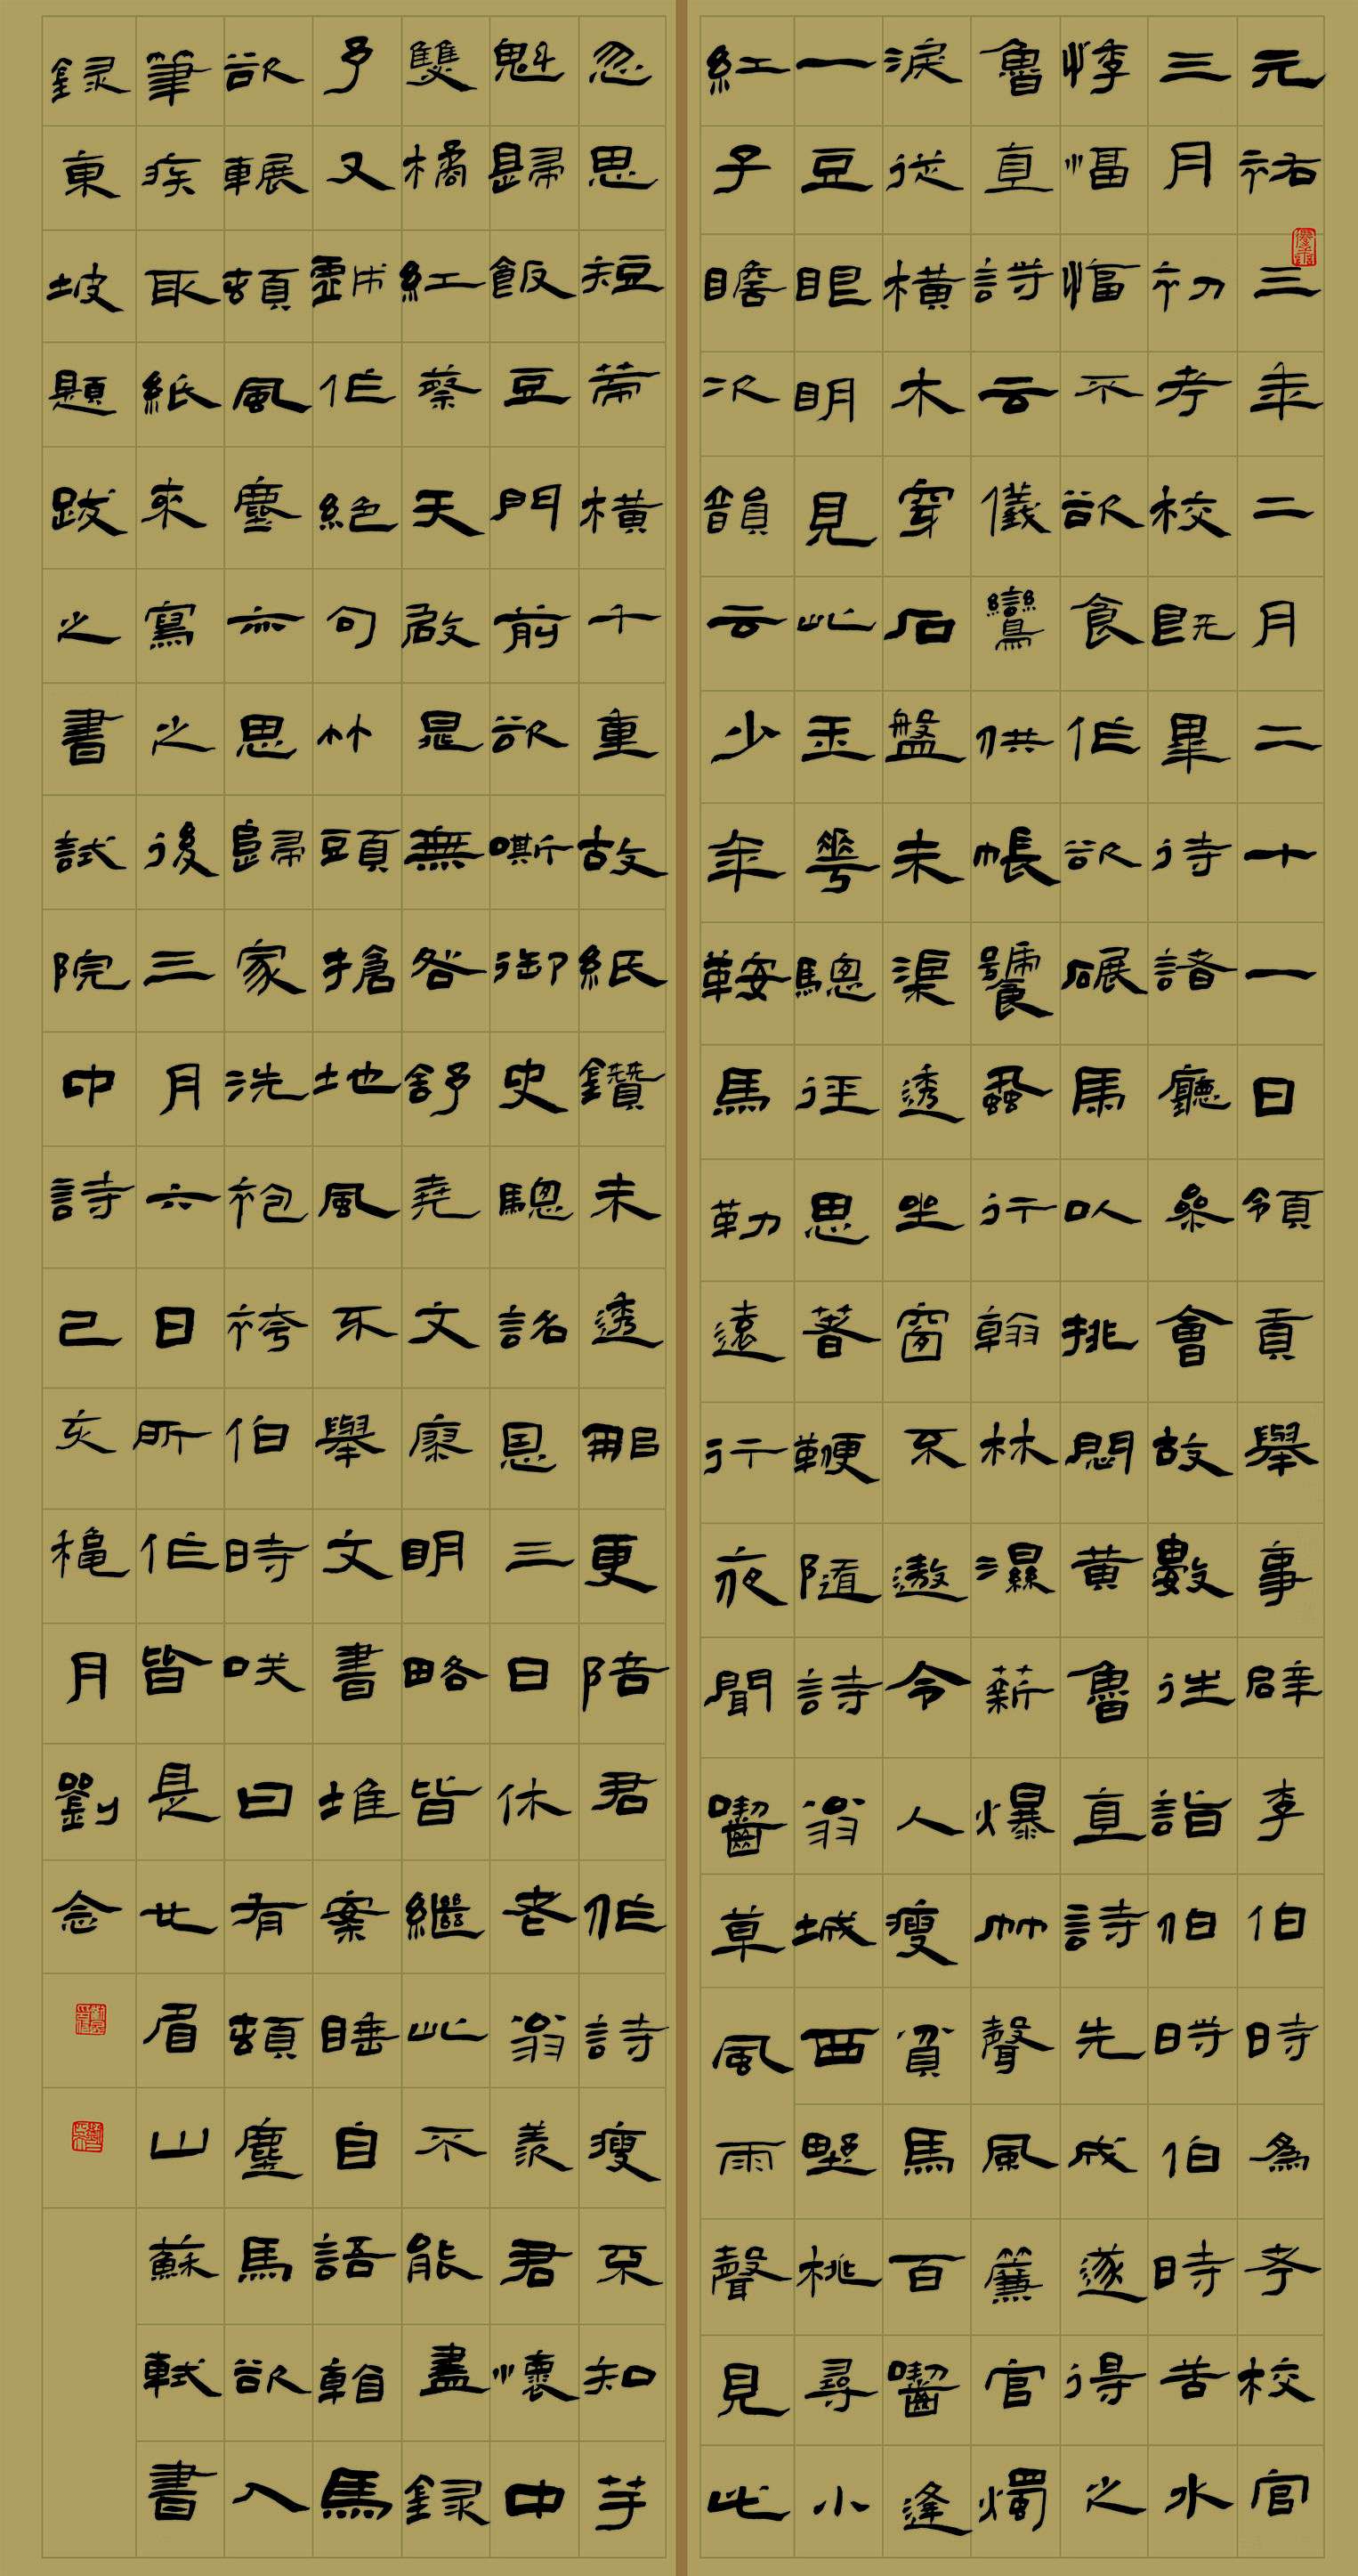 元祐三年二月二十一日領貢舉事辟李伯時為考校官
三月初考校既畢待諸廳參會故數往詣伯時伯時苦水
悸愊愊不欲食作欲碾馬以挑悶黃魯直詩先成遂得之
魯直詩云儀鸞供帳饕蝨行翰林濕薪爆竹聲風簾官燭
淚從橫木穿石盤未渠透坐窗不遨令人瘦貧馬百嚙逢
一豆眼明見此玉花驄徑思著鞭隨詩翁城西野桃尋小
紅子瞻次韻云少年鞍馬勒遠行夜聞嚙草風雨聲見此
忽思短策橫千重故紙鑽未透那更陪君作詩瘦不知芋
魁歸飯豆門前欲嘶御史驄詔恩三日休老翁羨君懷中
雙橘紅蔡天啟晁無咎舒堯文廖明略皆繼此不能盡錄
予又戲作絕句竹頭搶地風不舉文書堆案睡自語馬
欲輾頓風塵亦思歸家洗袍袴伯時笑曰有頓塵馬欲入
筆疾取紙來寫之後三月六日所作皆是也眉山蘇軾書
錄東坡題跋之書試院中詩己亥龝月劉念